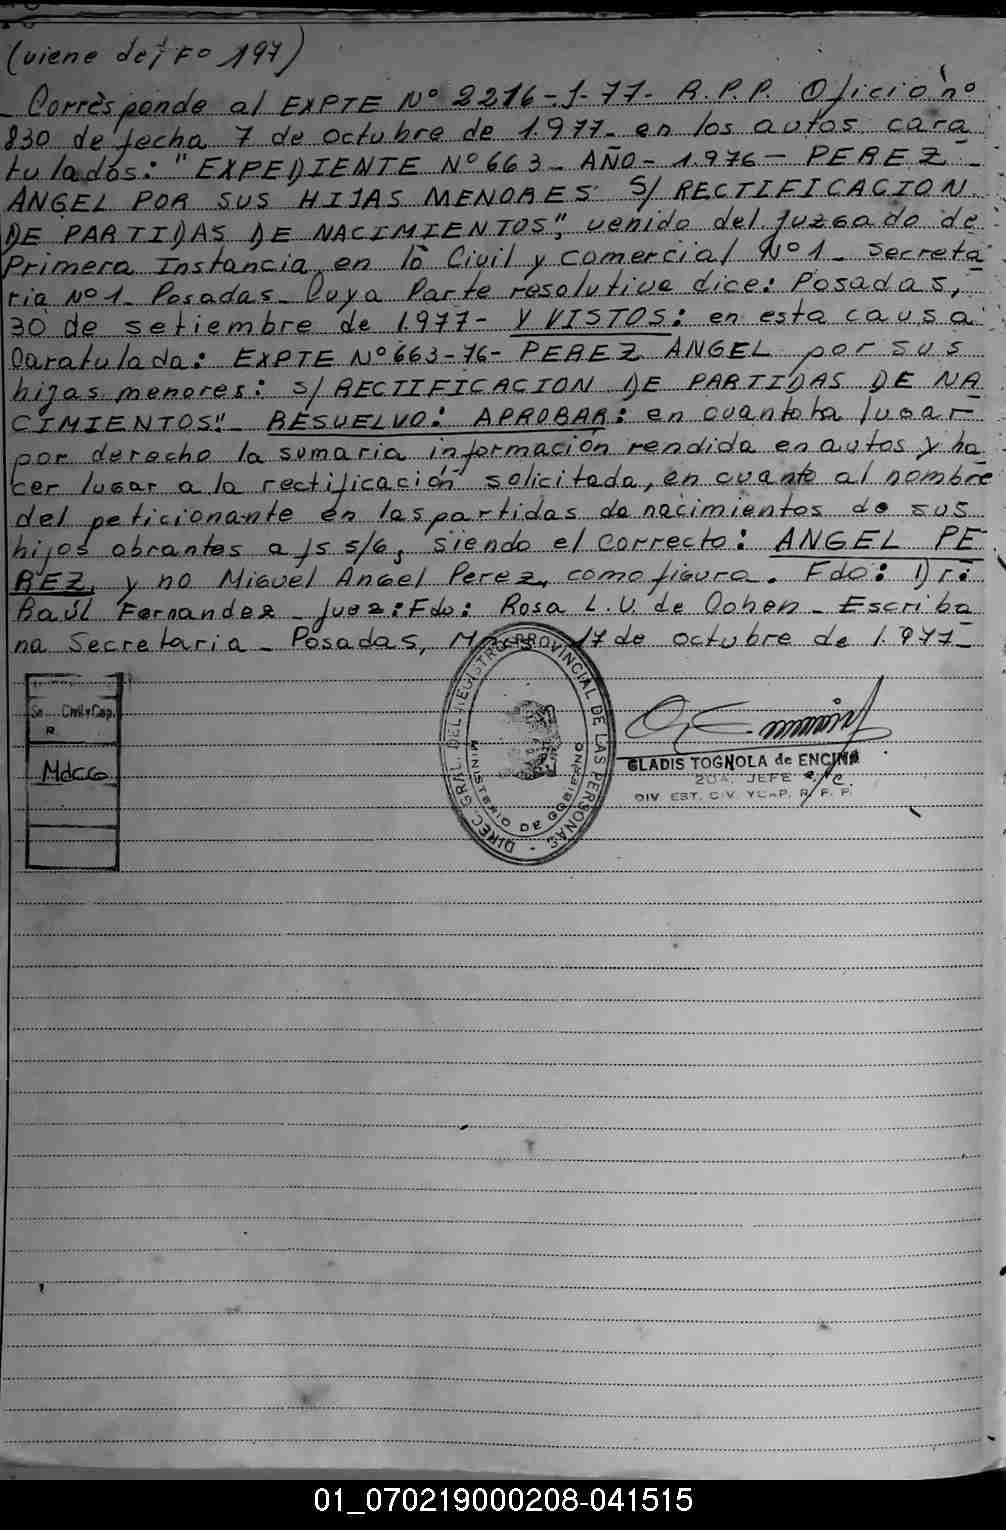 (viene del Fo 197)
_ Corresponde al EXPTE Nº 2216-J-77- R.P.P. Oficio nº
830 de fecha 7 de octubre de 1.977- en los autos cara
tulados: "EXPEDIENTE Nº 663- AÑO- 1.976- PEREZ -
ANGEL POR SUS HIJAS MENORES S/ RECTIFICACION
DE PARTIDAS DE NACIMIENTOS", venido del Juzgado de
Primera Instancia en lo Civil y Comercial Nº 1 - Secreta
ria Nº 1- Posadas- Cuya Parte resolutiva dice: Posadas,
30 de setiembre de 1.977- Y VISTOS: en esta causa
Caratulada: EXPTE Nº 663-76- PEREZ ANGEL por sus
hijas menores: S/ RECTIFICACION DE PARTIDAS DE NA
CIMIENTOS"- RESUELVO: APROBAR: en cuanto ha lugar
por derecho la sumaria información rendida en autos y ha
cer lugar a la rectificación solicitada, en cuanto al nombre
del peticionante en las partidas de nacimientos de sus
hijos obrantes a fs 5/6, siendo el correcto: ANGEL PE
REZ, y no Miguel Angel Perez, como figura. Fdo: Dr:
Raúl Fernandez - Juez: Fdo: Rosa L. V. de Cohen - Escriba
na Secretaria - Posadas, Mnes 17 de octubre de 1.977-
Civil y Cap.
R
Mdcco
DIREC. GRAL. DEL REGISTRO PROVINCIAL DE LAS PERSONAS -
MINISTERIO DE GOBIERNO
GLADIS TOGNOLA de ENCINA
2DA. JEFE a/c.
DIV. EST. CIV. Y CAP. R. P. P.
01_070219000208-041515